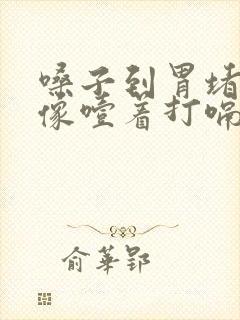 嗓子到胃堵
像噎着打嗝
俞華郢